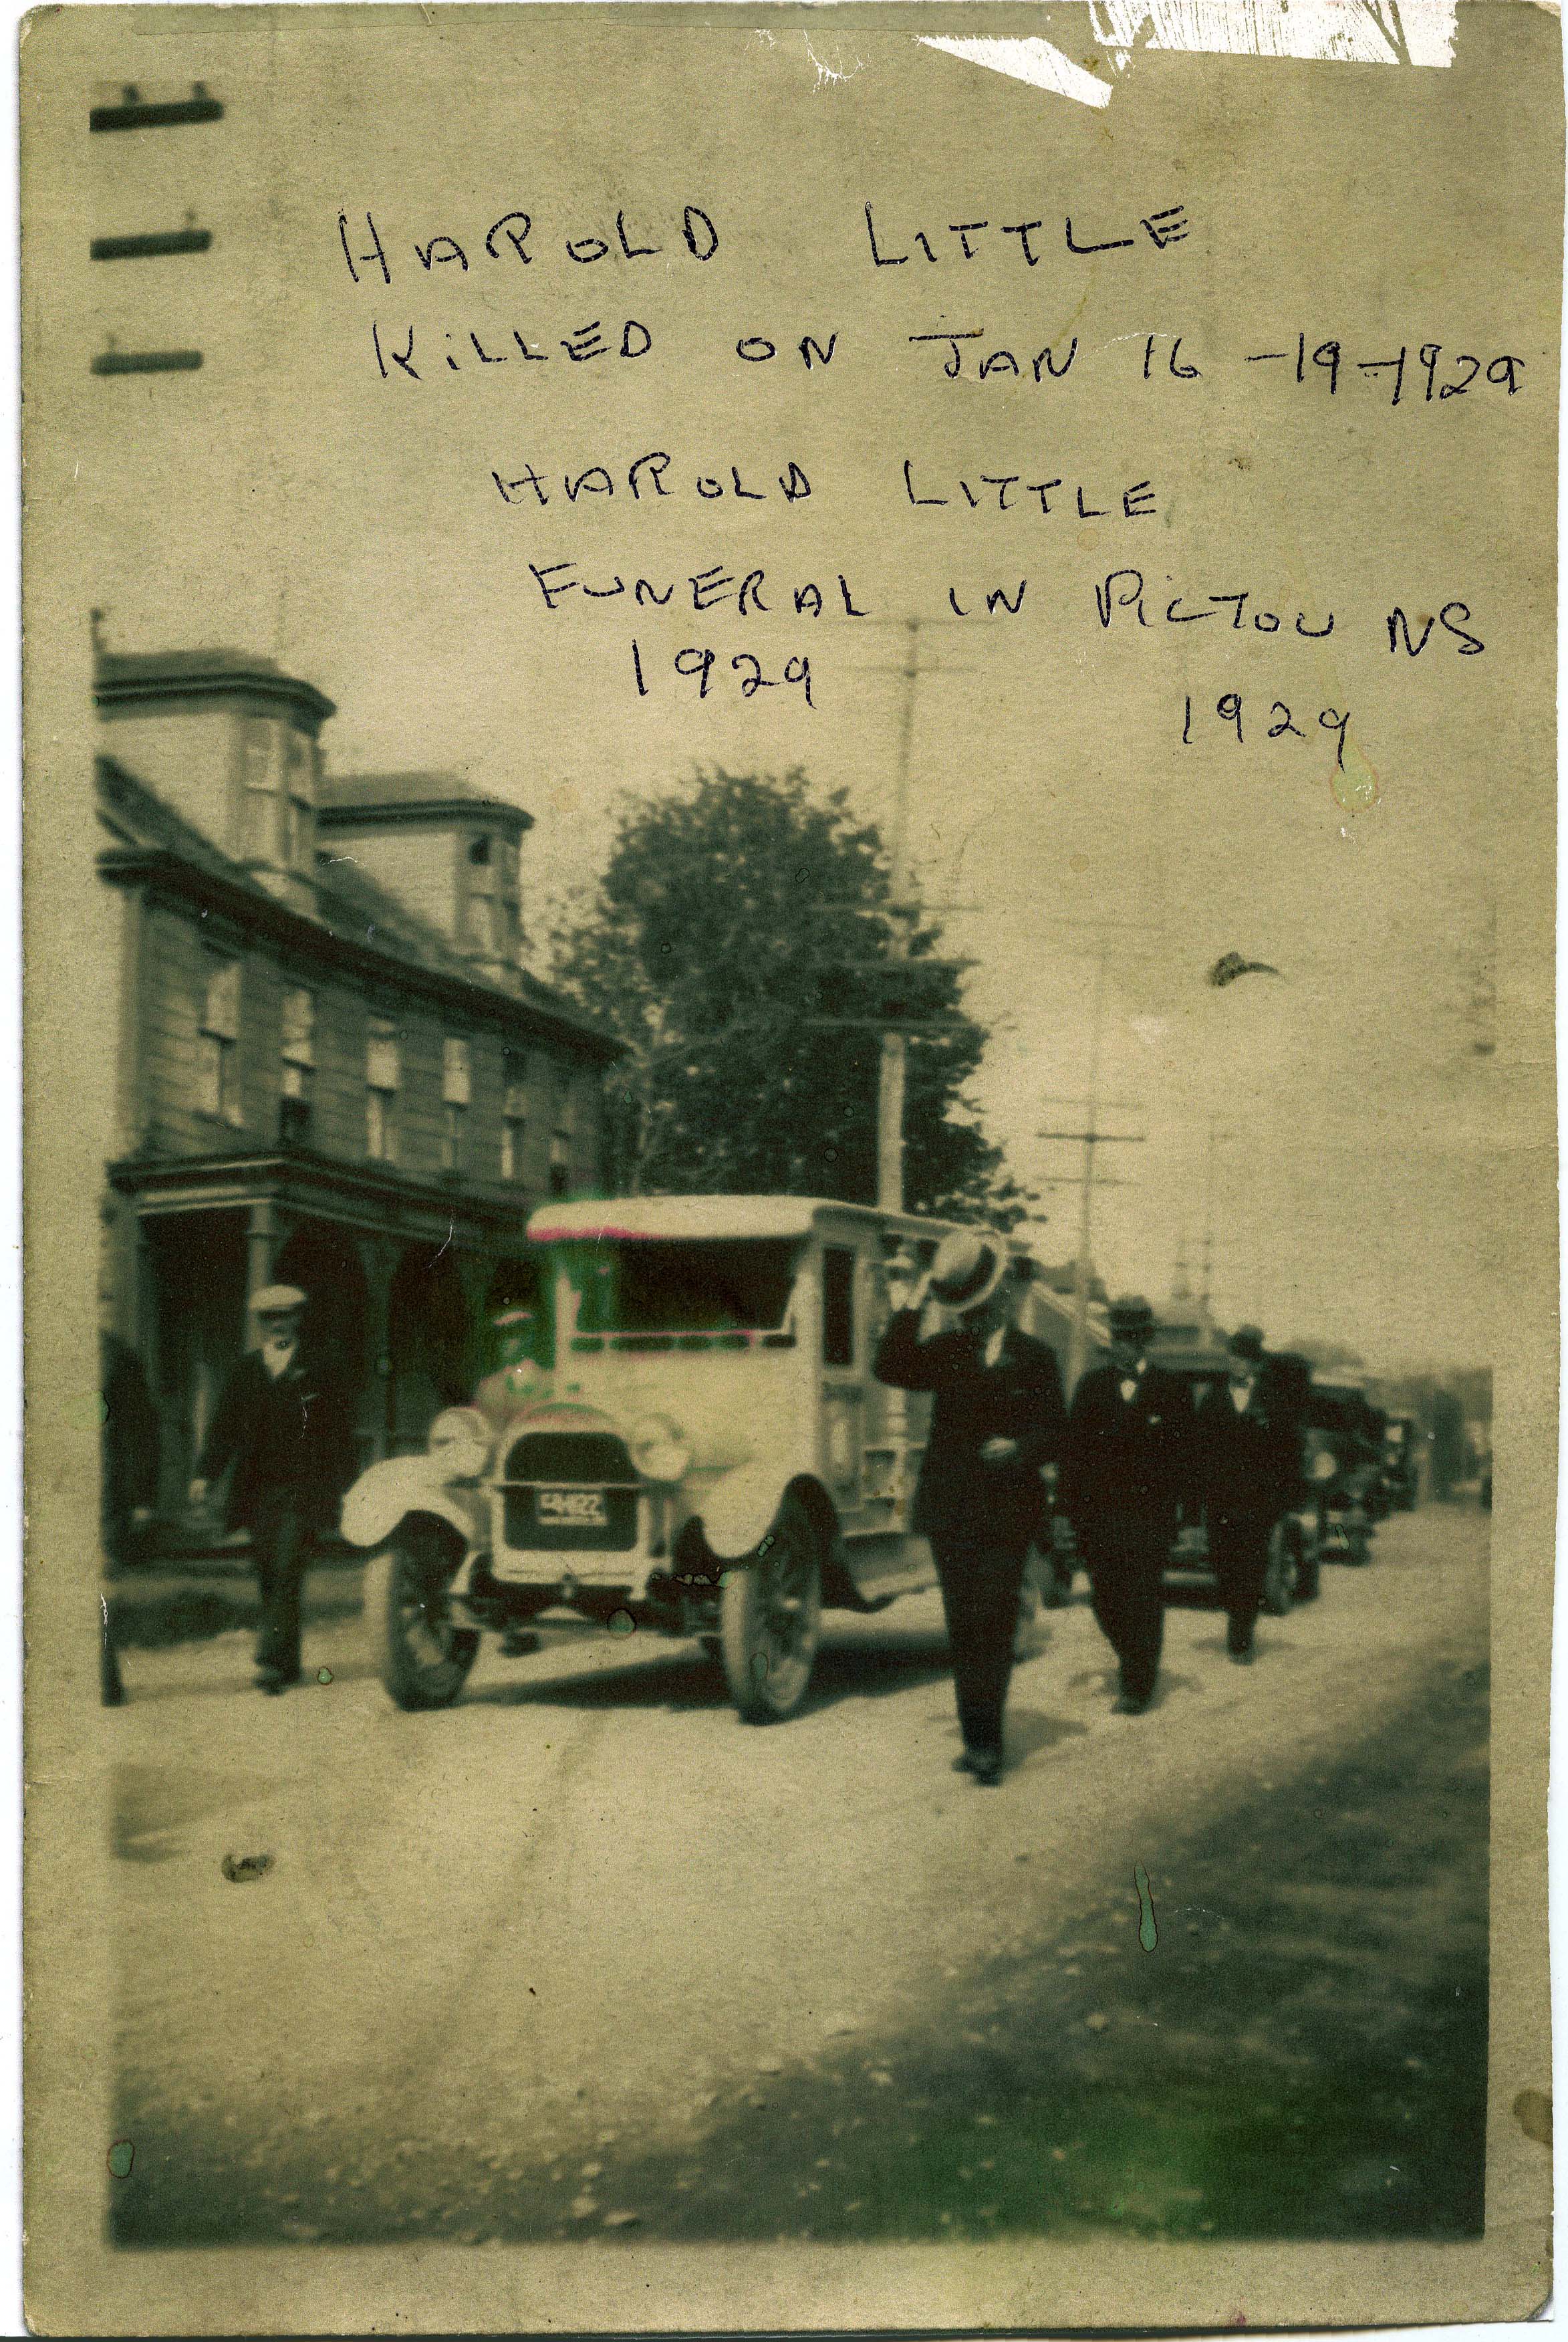 HAROLD LITTLE
KiLLED ON JAN 16 -19-1929
HAROLD LITTLE
FUNERAL IN PICTOU NS
1929
1929